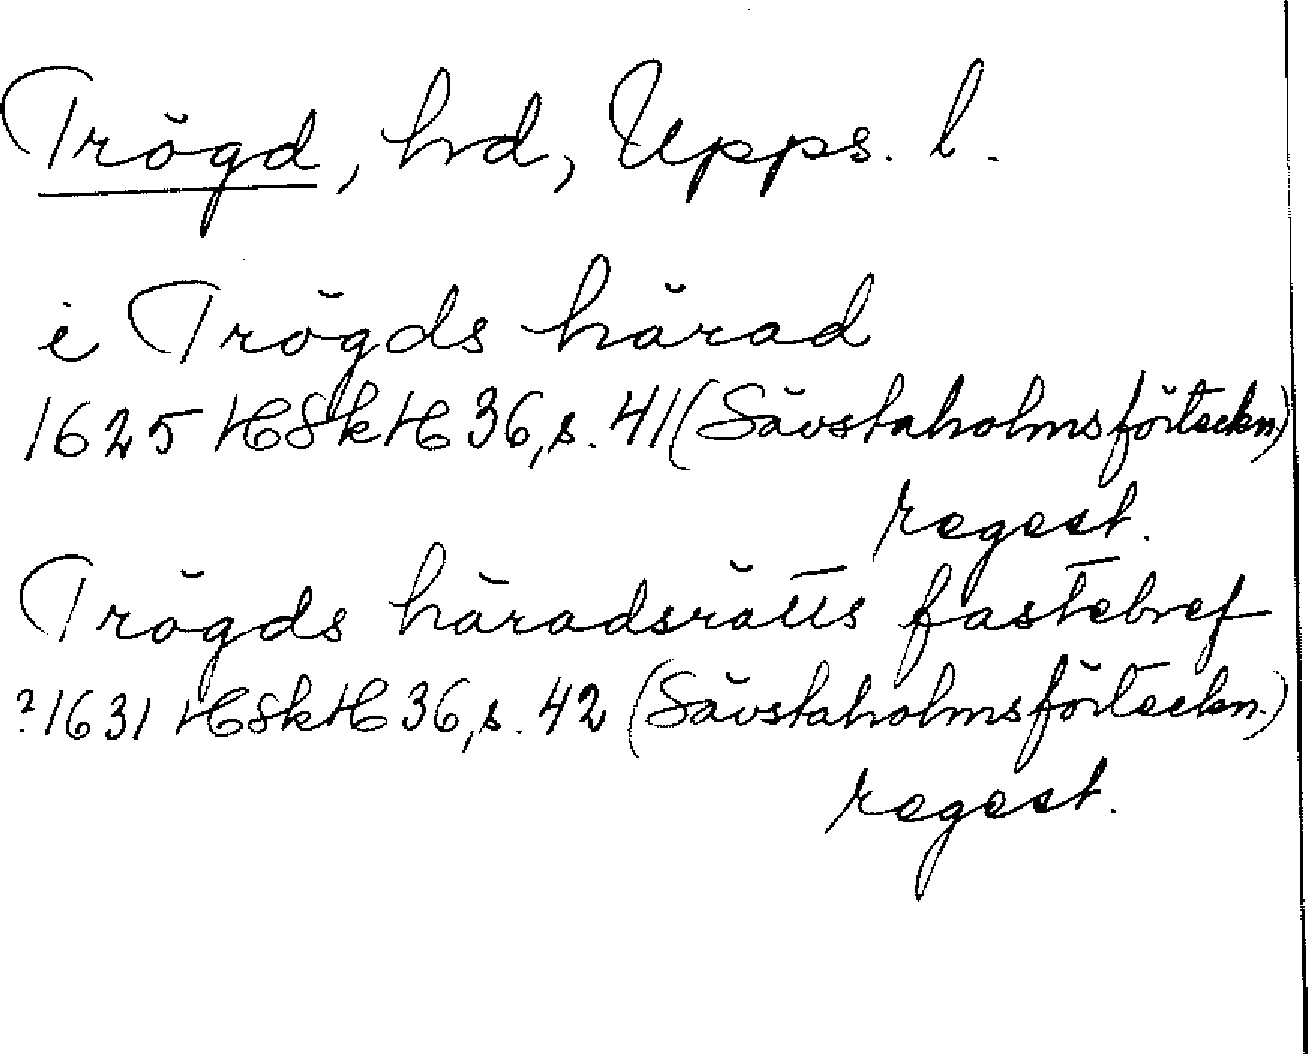 Trögd, hd, Upps. l.
i Trögds härad
1625 HSkH 36, s. 41 (Sävstaholmsförteckn.)
regest.
Trögds häradsrätts fastebref
?1631 HSkH 36, s. 42 (Sävstaholmsförteckn.)
regest.